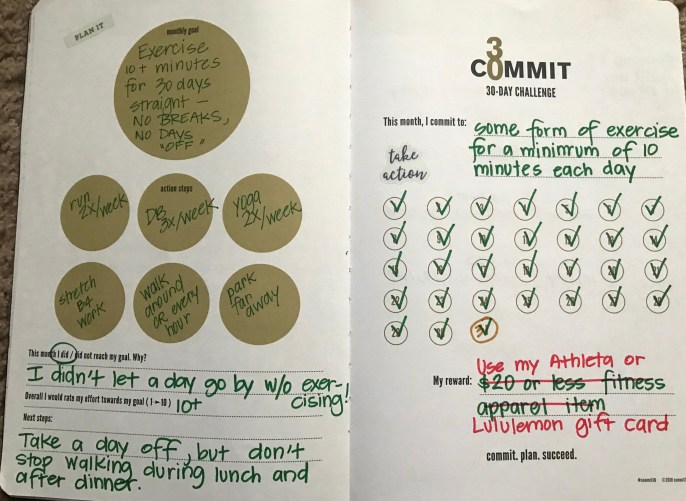 PLAN IT
monthly goal
Exercise
10+ minutes
for 30 days
straight —
NO BREAKS,
NO DAYS
"OFF"
action steps
run
2x/week
DB
3x/week
yoga
2x/week
stretch
B4
work
walk
around
OR every
hour
park
far
away
This month I did / did not reach my goal. Why?
I didn't let a day go by w/o exer-
cising!
Overall I would rate my effort towards my goal (1 - 10) 10+
Next steps:
Take a day off, but don't
stop walking during lunch and
after dinner.
30
COMMIT
30-DAY CHALLENGE
This month, I commit to: some form of exercise
for a minimum of 10
minutes each day
take
action
Use my Athleta or
My reward: $20 or less fitness
apparel item
Lululemon gift card
commit. plan. succeed.